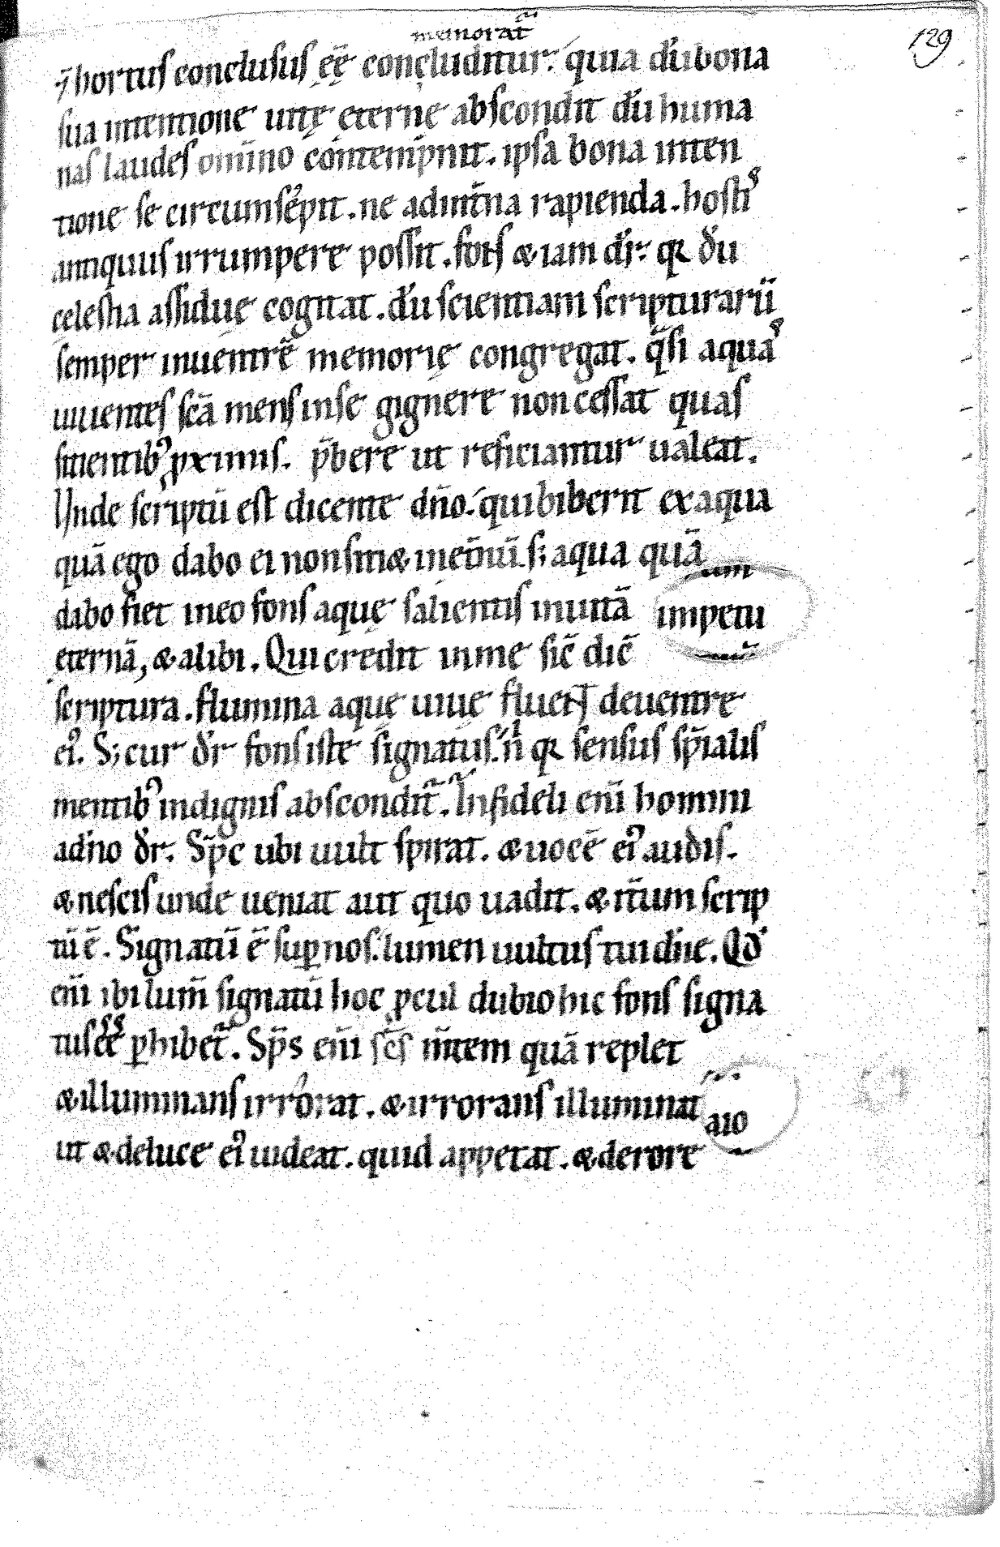 memorat᷑
129
⁊ hortus conclusus ęē concluditur. quia dū bona
sua intentione uitę eternę abscondit dū huma
nas laudes omīno contempnit. ipsa bona inten
tione se circumsepit. ne ad intīna rapienda. hostis
antiquus irrumpere possit. fons & iam dr̄. qꝛ dū
celestia assidue cogitat. dū scientiam scripturarū
semper in uentrē memorię congregat. q̄si aquas
uiuentes scā mens in se gignere non cessat quas
sitientibꝰ ꝓximis. p̄bere ut reficiantur ualeat.
Unde scriptū est dicente dn̄o. qui biberit ex aqua
quā ego dabo ei non sitiet in et̄nū. s; aqua quā
dabo fiet in eo fons aquę salientis in uitā
impetu
eternā, & alibi. Qui credit in me sic̄ dic̄
scriptura. flumina aquę uiuę fluent de uentre
eiꝰ. S; cur dr̄ fons iste signatus. n̄ qꝛ sensus sp̄ialis
mentibꝰ indignis abscondit᷑. Infideli eni̅ homini
a dn̄o dr̄. Sp̄c ubi uult spirat. & uocē eiꝰ audis.
& nescis unde ueniat aut quo uadit. & it̄um scrip
tū ē. Signatū ē suꝑ nos. lumen uultus tui dn̄e. Qd̄
eni̅ ibi lum̄ signatū hoc ꝓcul dubio hic fons signa
tus eē ꝑhibet᷑. Sp̄s eni̅ sc̄s m̄tem quā replet
& illuminans irrorat. & irrorans illuminat
aio
ut & de luce eiꝰ uideat. quid appetat. & de rore